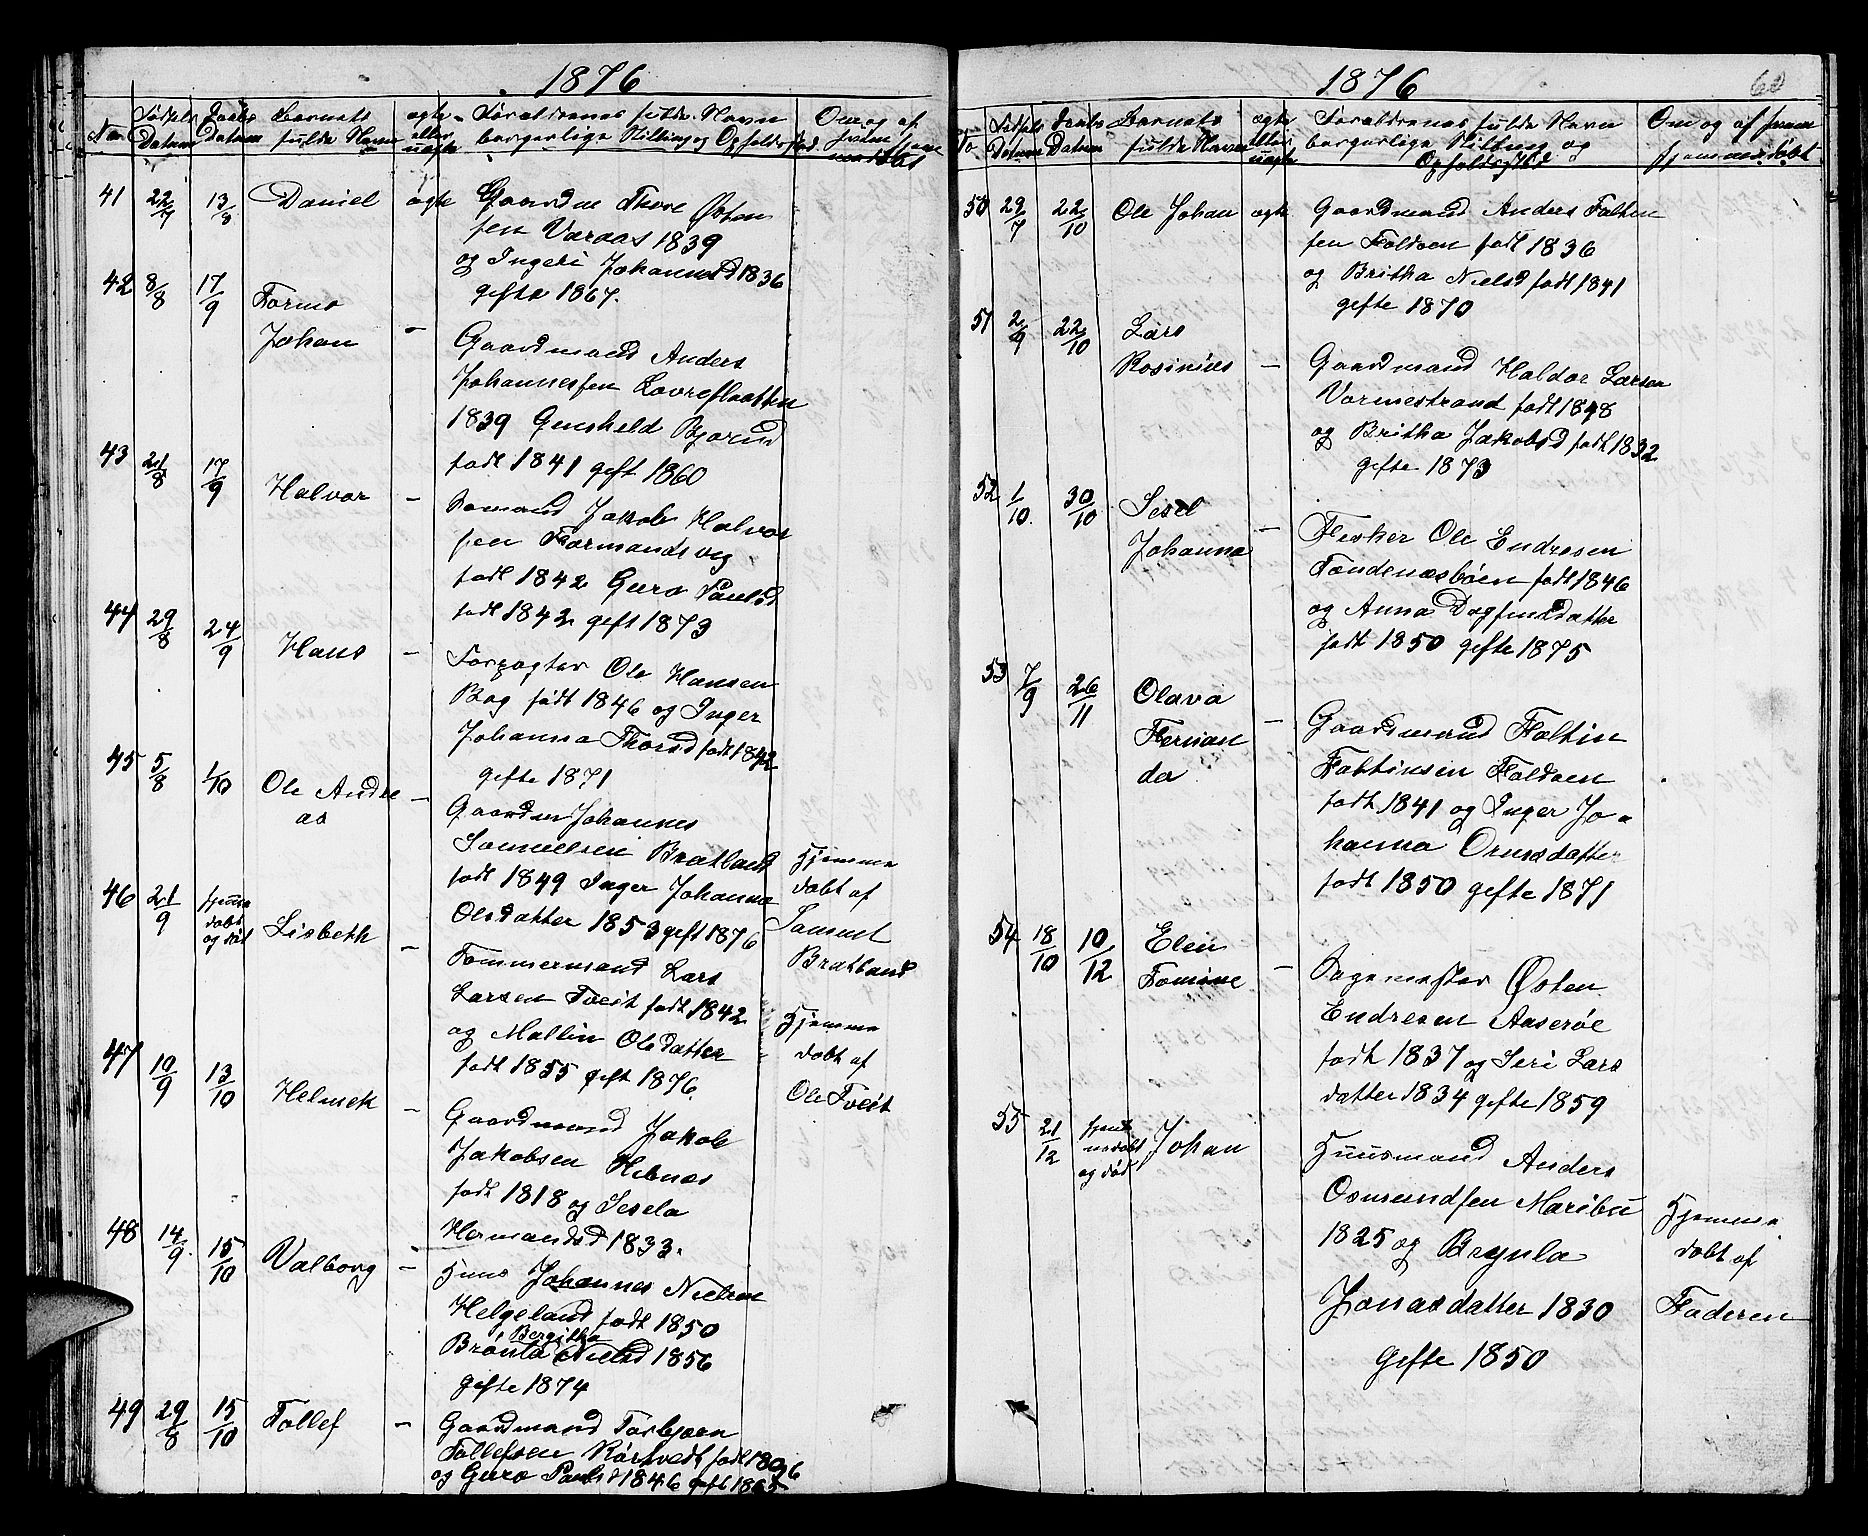 1876
No Fødsels Datum Daabs Datum Barnets fulde Navn ægte eller uægte Forældrenes fulde Navn borgerlige Stilling og Opholdssted Om og af hvem hjemmedøbt
41 22/7 13/8 Daniel ægte Gaardm Thore Østen
sen Varaas 1839
og Ingeri Johannesd 1836
gifte 1867.
42 8/8 17/9 Tormo
Johan - Gaardmand Anders
Johannessen Lovreslaatten
1839 Gunhild Bjornd
født 1841 gift 1860
43 21/8 17/9 Halvor - Jakob Halvor
sen Formandsvig
født 1842 Guro Paulsd
født 1842 gift 1873
44 29/8 24/9 Hans - Forpagter Ole Hansen
Bog født 1846 og Inger
Johanna Thorsd født 1842
gifte 1871
45 5/8 1/10 Ole Andre
as - Gaardm Johannes
Samuelsen Bratland
født 1849 Inger Johanna
Olsdatter 1853 gift 1876
Hjemme
døbt af
Samuel
Bratland
46 21/9 hjemme
døbt
og død Lisbeth - Tømmermand Lars
Larsen Tveit født 1842
og Mallin Olsdatter
født 1855 gift 1876
Hjemme
døbt af
Ole Tveit
47 10/9 13/10 Helmek - Gaardmand Jakob
Jakobsen Hebnes
født 1818 og Sesela
Hermandsd 1833.
48 14/9 15/10 Valborg - Huus Johannes Nielsen
Helgeland født 1850
Bergitha
Brønla Nielsd 1856
gifte 1874
49 29/8 15/10 Tollef - Gaardmand Torbjørn
Tollefsen Rørtvedt født
og Guro Paulsd 1846 gift
1876 60
No Fødsels Datum Daabs Datum Barnets fulde Navn ægte eller uægte Forældrenes fulde Navn borgerlige Stilling og Opholdssted Om og af hvem hjemmedøbt
50 29/7 22/10 Ole Johan ægte Gaardmand Anders Falten
sen Foldøen født 1836
og Britha Nielsd født 1841
gifte 1870
51 2/9 22/10 Lars
Rosinius - Gaardmand Haldor Larsen
Vormestrand født 1848
og Britha Jakobsd født 1832
gifte 1873
52 1/10 30/10 Sesel
Johanna - Fisker Ole Endresen
Tøndenæsbøen født 1846
og Anna Dagfinsdatter
født 1850 gifte 1875
53 7/9 26/11 Olava
Fernan
da - Gaardmand Faltin
Faltinsen Foldøen
født 1841 og Inger Jo-
hanna Ormsdatter
født 1850 gifte 1871
54 18/10 10/12 Elen
Tomine - Sagemester Østen
Endresen Aaserøe
født 1837 og Siri Lars
datter 1834 gifte 1859
55 21/12 hjem
medøbt
og død Johan Huusmand Anders
Osmundsen Maribu
1825 og Brynla
Jonasdatter 1830
gifte 1850
Hjemme
døbt af
Faderen